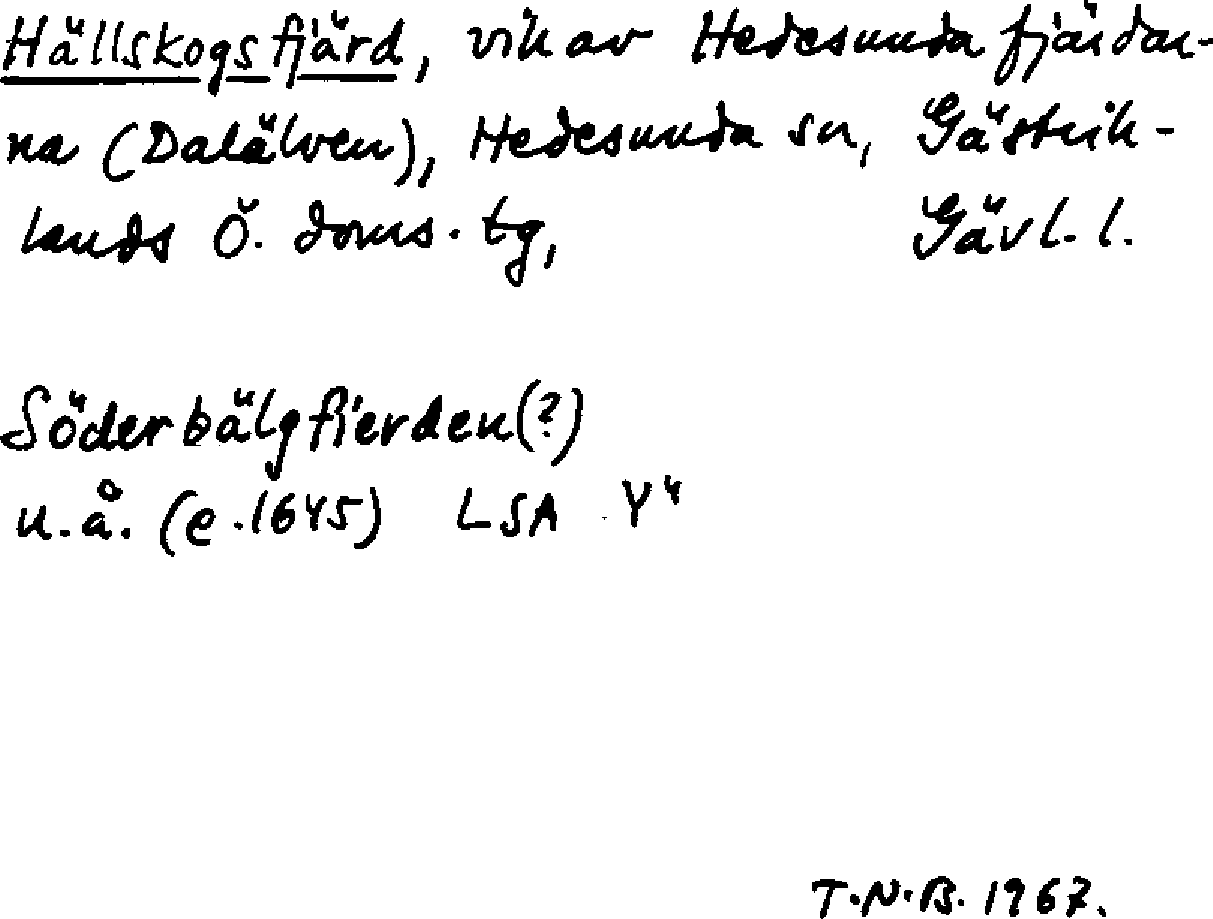 Hällskogsfjärd, vik av Hedesundafjärdar-
na (Dalälven), Hedesunda sn, Gästrik-
lands Ö. doms. tg, Gävl. l.
Söderbälgfierden(?)
u.å. (e.1645) LSA Y⁴
T.N.B. 1967.